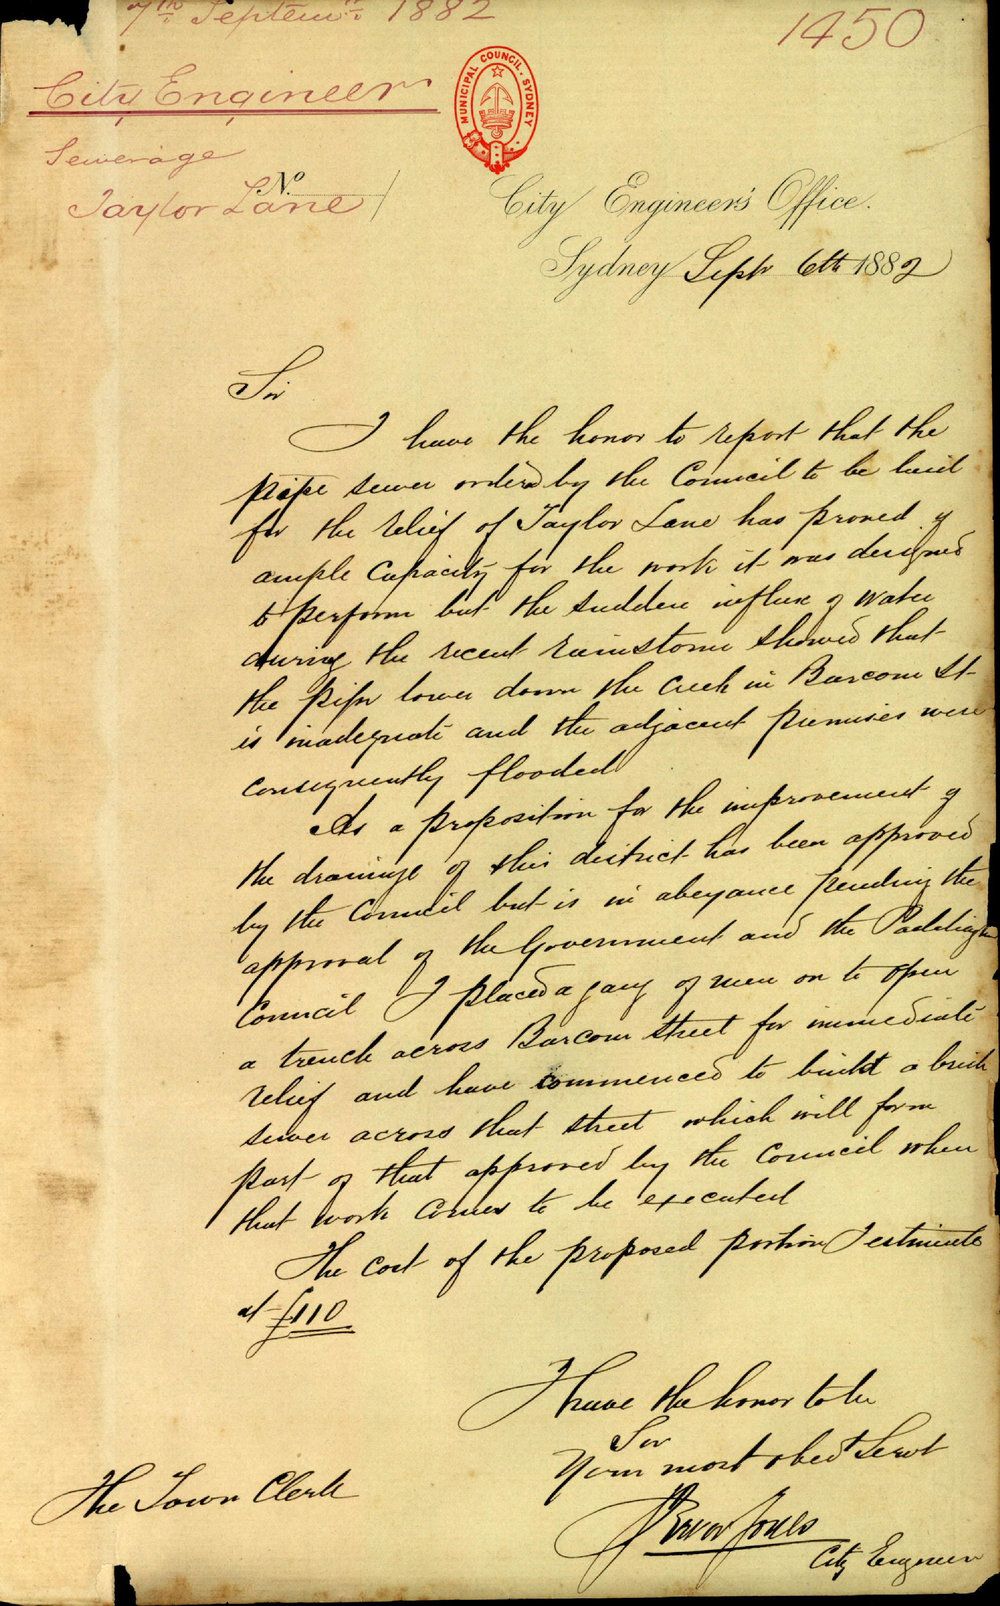 7th Septemr 1882
1450
City Engineer
Sewerage
Taylor Lane
No
MUNICIPAL COUNCIL. SYDNEY
City Engineer's Office.
Sydney Septr 6th 1882
Sir
I have the honor to report that the
pipe sewer ordered by the Council to be laid
for the relief of Taylor Lane has proved of
ample capacity for the work it was designed
to perform but the sudden influx of water
during the recent rainstorm showed that
the pipe lower down the creek in Barcom St
is inadequate and the adjacent premises were
consequently flooded
As a proposition for the improvement of
the drainage of this district has been approved
by the Council but is in abeyance pending the
approval of the Government and the Paddington
Council I placed a gang of men on to open
a trench across Barcom Street for immediate
relief and have commenced to build a brick
sewer across that street which will form
part of that approved by the Council when
that work comes to be executed
The cost of the proposed portion I estimate
at £110
I have the honor to be
Sir
Your most obedt Servt
Trevor Jones
City Engineer
The Town Clerk